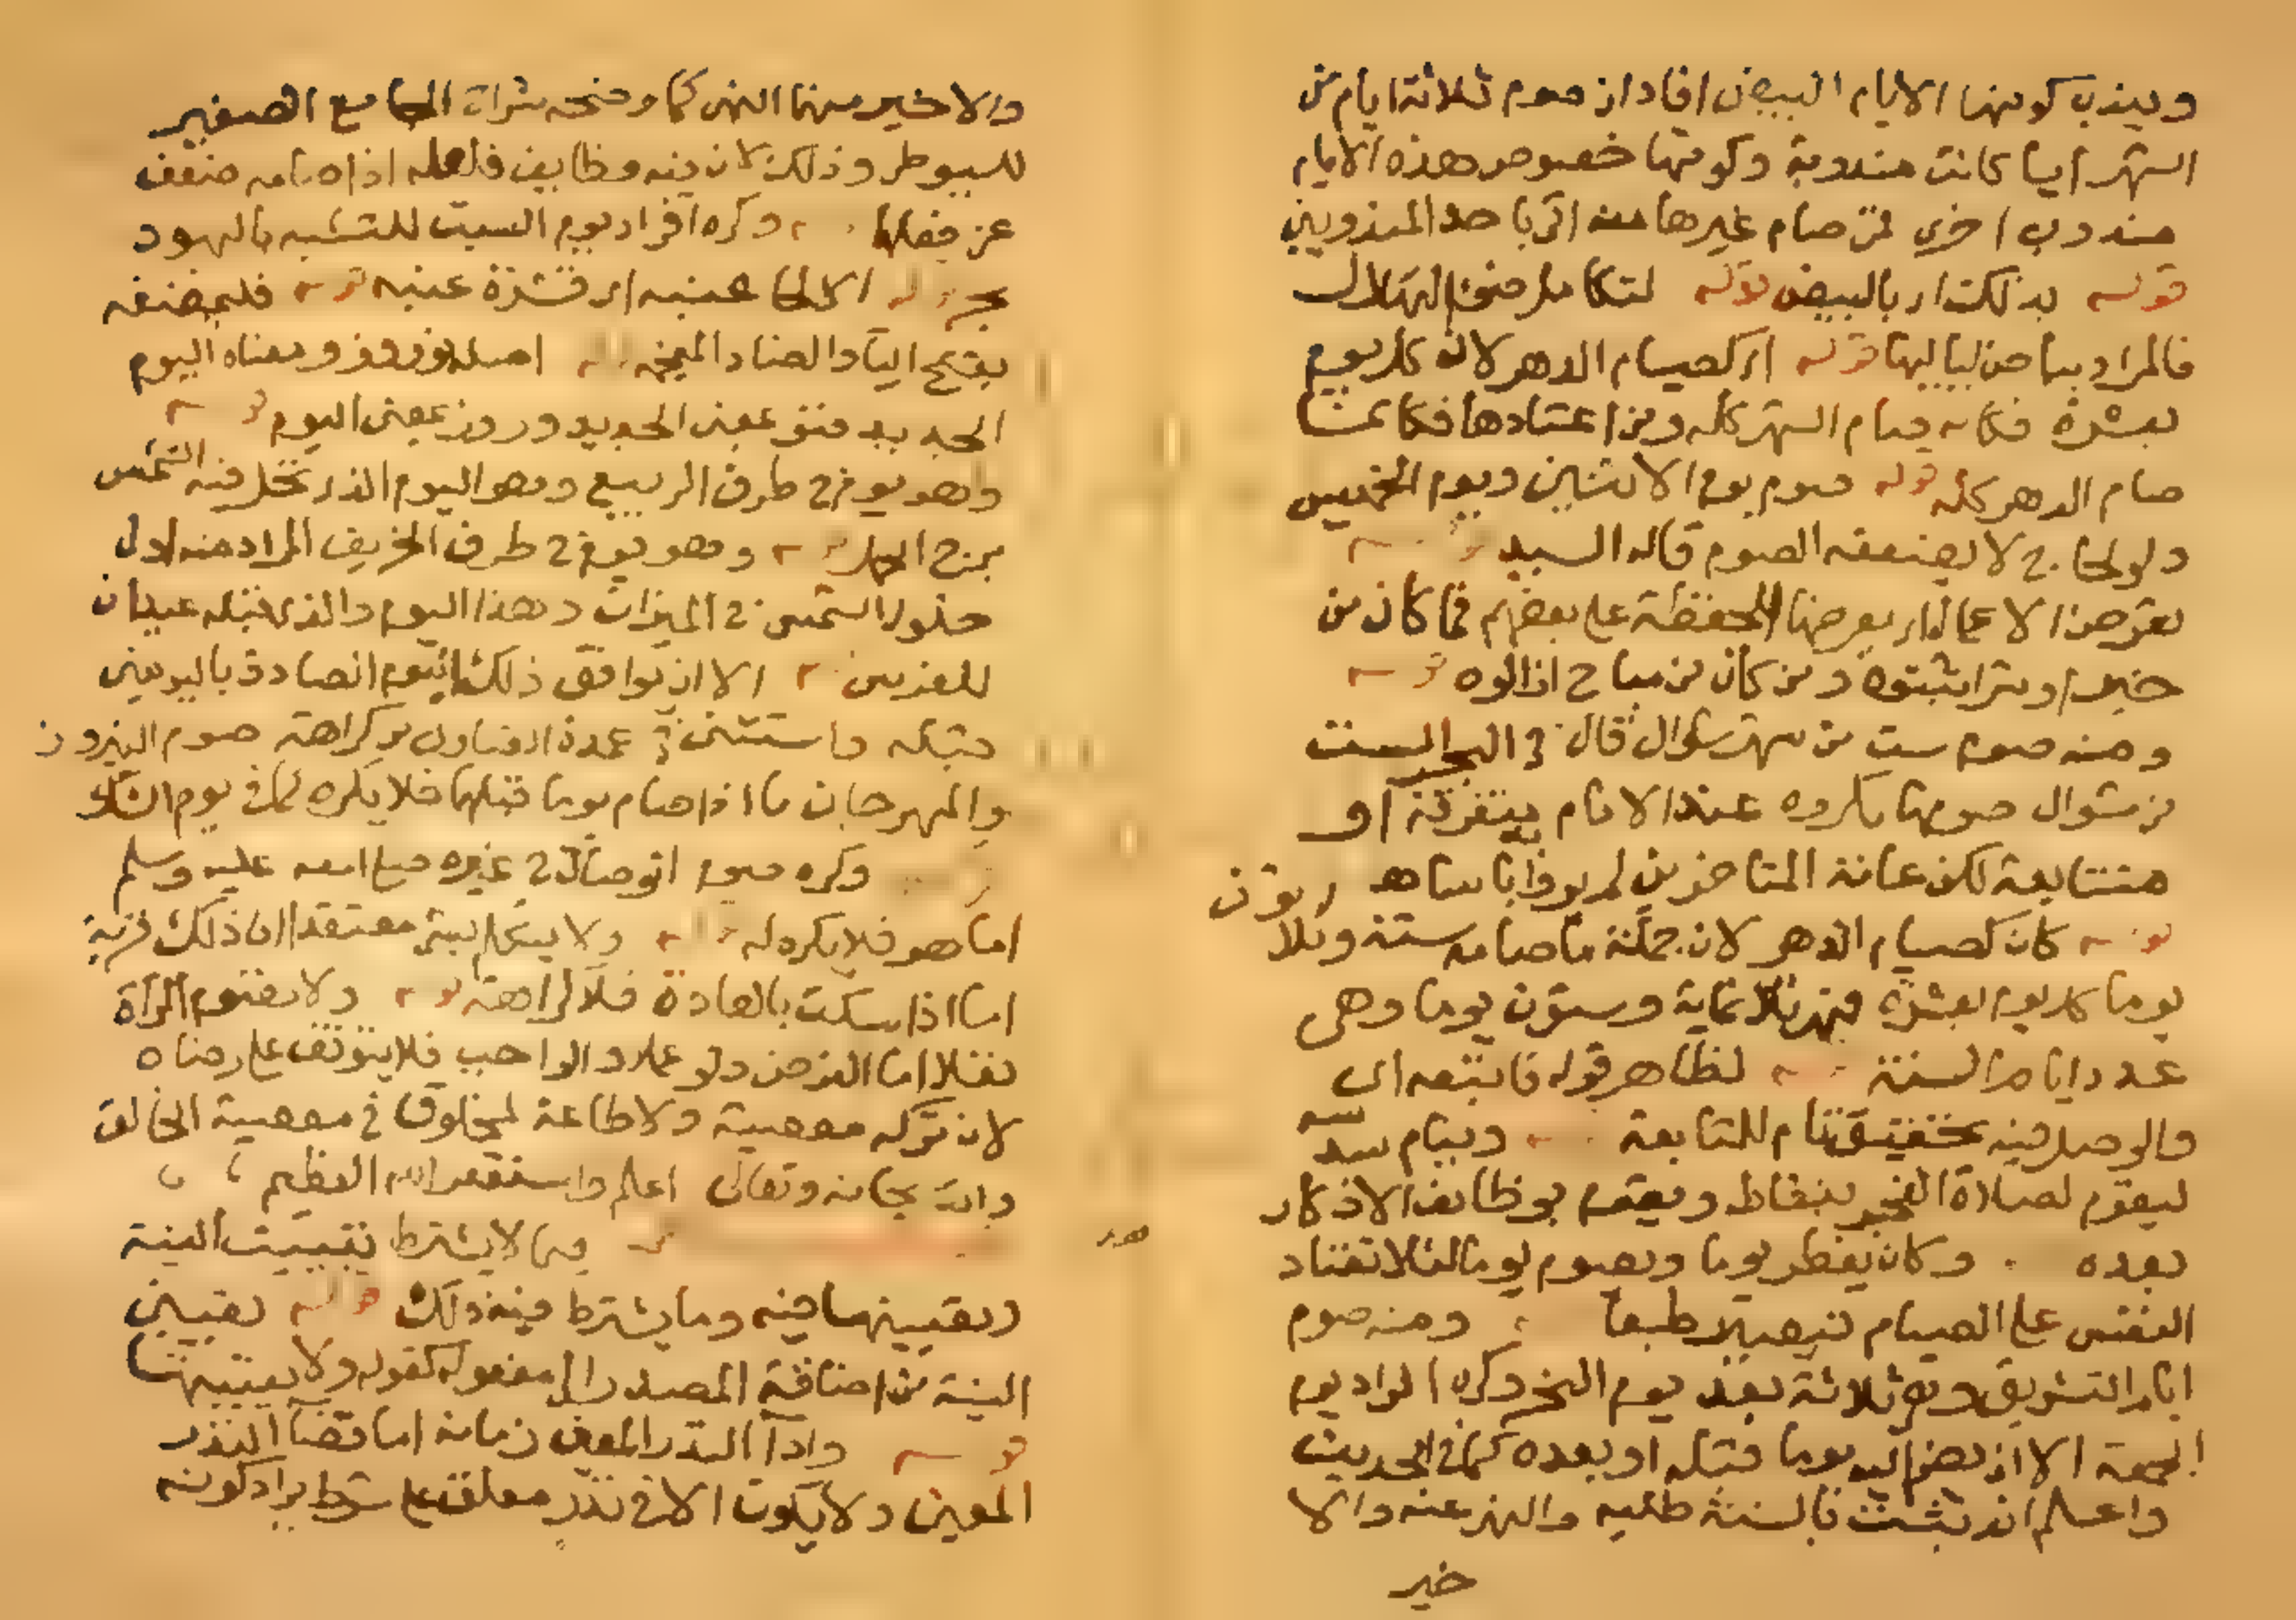 ويندب كونها الايام البيض افاد ان صوم ثلاثة ايام من
الشهر ايا كانت مندوبة وكونها خصوص هذه الايام
مندوب اخر فمن صام غيرها منه اتى باحد المندوبين
قوله بذلك اي بالبيض قوله لتكامل ضوء الهلال
فالمراد بياض لياليها قوله اي كصيام الدهر لان كل يوم
بعشرة فكانه صام الشهر كله ومن اعتادها فكانما
صام الدهر كله قوله صوم يوم الاثنين ويوم الخميس
ولو لحاج لا يضعفه الصوم قاله السيد قوله
تعرض الاعمال اي يعرضها الحفظة على بعضهم فما كان من
خير او شر اثبتوه ومن كان من مباح ازالوه قوله
ومنه صوم ست من شهر شوال قال في البحر الست
من شوال صومها مكروه عند الامام متفرقة او
متتابعة لكن عامة المتاخرين لم يروا باسا هـ
قوله كان كصيام الدهر لان جملة ما صامه ستة وثلاثون
يوما كل يوم بعشرة فهي ثلاثماية وستون يوما وهي
عدد ايام السنة لظاهر قوله فاتبعه اي
والوصل فيه تحقيق تام للمتابعة وينام سدسه
ليقوم لصلاة الفجر بنشاط ويقوم بوظايف الاذكار
بعده وكان يفطر يوما ويصوم يوما لئلا تعتاد
النفس على الصيام فيصير طبعا ومنه صوم
ايام التشريق وهي ثلاثة بعد يوم النحر وكره افراد يوم
الجمعة الا ان يضم اليه يوما قبله او بعده كما في الحديث
واعلم انه ثبت بالسنة طلبه والنهي عنه والا
خير
والاخير منهما النهي كما وضحه شراح الجامع الصغير
للسيوطي وذلك لان فيه وظايف فلعله اذا صامه ضعف
عن فعلها وكره افراد يوم السبت للتشبه باليهود
الا لحا عنبه اي قشرة عنبه قوله فليمضغه
بفتح الياء والضاد المعجمة اصله نوروز ومعناه اليوم
الجديد فنو بمعنى الجديد وروز بمعنى اليوم قوله
وهو يوم في طرف الربيع وهو اليوم الذي تحل فيه الشمس
برج الحمل قوله وهو يوم في طرف الخريف المراد منه اول
حلول الشمس في الميزان وهذا اليوم والذي قبله عيدان
للفرس الا ان يوافق ذلك اليوم اي صادق باليومين
قبله واستثنى في عمدة الفتاوى من كراهة صوم النيروز
والمهرجان ما اذا صام يوما قبلها فلا يكره كما في يوم الشك
وكره صوم الوصال في غيره صلى الله عليه وسلم
اما هو فلا يكره له ولا يتكلم بشيء معتقدا ان ذلك قربة
اما اذا سكت بالعادة فلا كراهة قوله ولا تصوم المراة
نفلا اما الفرض ولو عملا والواجب فلا يتوقف على رضاه
لان تركه معصية ولا طاعة لمخلوق في معصية الخالق
والله سبحانه وتعالى اعلم واستغفر الله العظيم
فيما لا يشترط تبييت النية
وتعيينها فيه وما يشترط فيه ذلك قوله تعيين
النية من اضافة المصدر الى مفعوله كقوله ولا تبييتها
قوله واداء النذر المعين زمانه اما قضاء النذر
المعين ولا يكون الا في نذر معلق على شرط يراد كونه